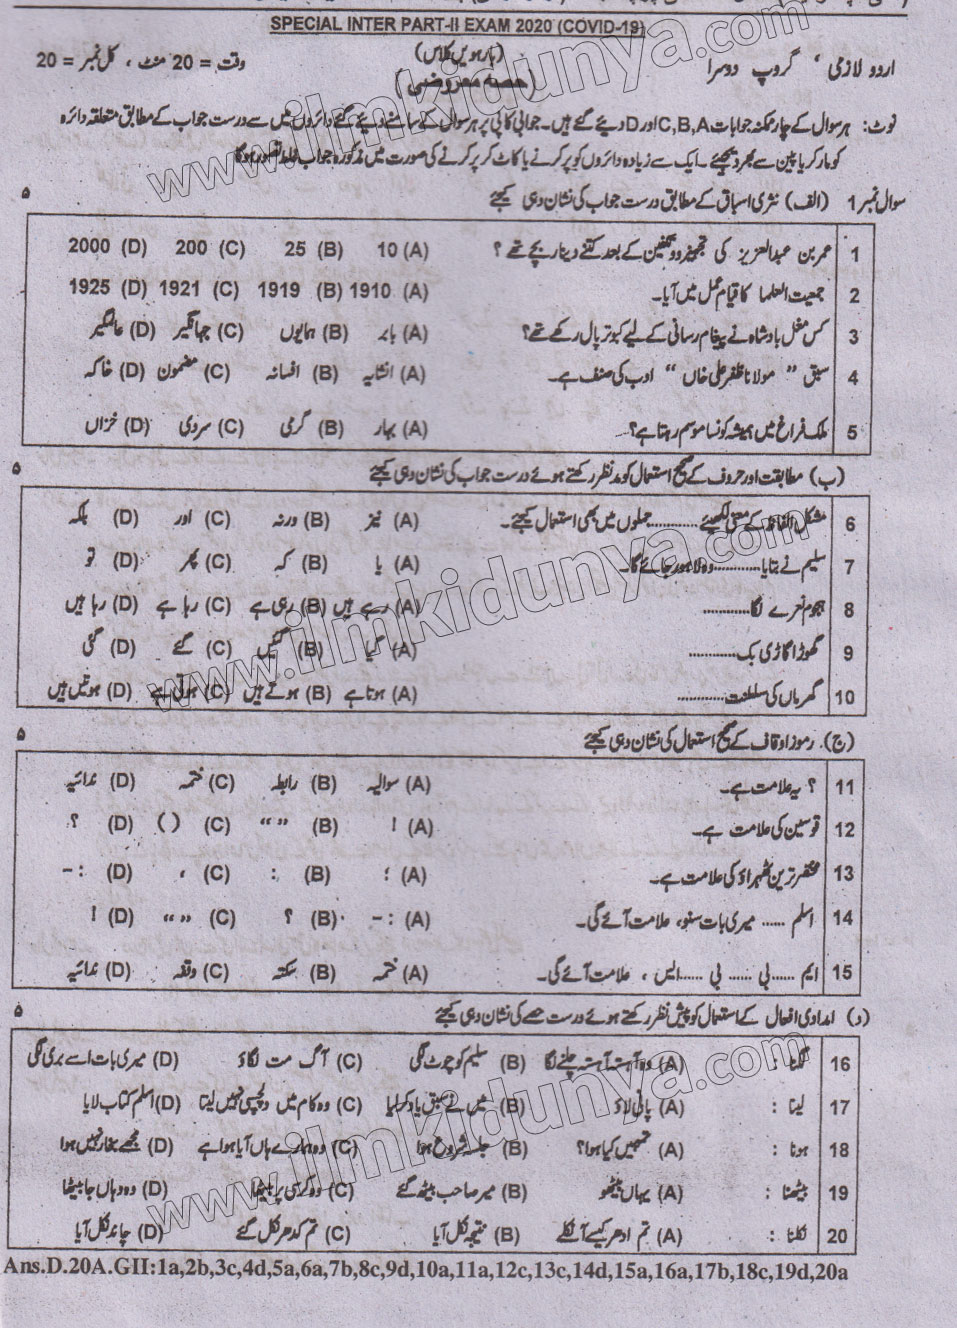 SPECIAL INTER PART-II EXAM 2020 (COVID-19)
(بارہویں کلاس)
اردو لازمی ، گروپ دوسرا (حصہ معروضی) وقت = 20 منٹ ، کل نمبر = 20
نوٹ: ہر سوال کے چار ممکنہ جوابات C,B,A اور D دیئے گئے ہیں۔ جوابی کاپی پر ہر سوال کے سامنے دیئے گئے دائروں میں سے درست جواب کے مطابق متعلقہ دائرہ
کو مارکر یا پین سے بھر دیجئے۔ ایک سے زیادہ دائروں کو پر کرنے یا کاٹ کر پر کرنے کی صورت میں مذکورہ جواب غلط تصور ہو گا
سوال نمبر 1 (الف) نثری اسباق کے مطابق درست جواب کی نشان دہی کیجئے ۵
1 عمر بن عبدالعزیز کی تجہیز و تکفین کے بعد کتنے دینار بچے تھے ؟ (A) 10 (B) 25 (C) 200 (D) 2000
2 جمعیت العلما کا قیام عمل میں آیا۔ (A) 1910 (B) 1919 (C) 1921 (D) 1925
3 کس مغل بادشاہ نے پیغام رسانی کے لیے کبوتر پال رکھے تھے؟ (A) بابر (B) ہمایوں (C) جہانگیر (D) عالمگیر
4 سبق " مولانا ظفر علی خاں " ادب کی صنف ہے۔ (A) انشایہ (B) افسانہ (C) مضمون (D) خاکہ
5 ملک فراغ میں ہمیشہ کونسا موسم رہتا ہے؟ (A) بہار (B) گرمی (C) سردی (D) خزاں
(ب) مطابقت اور حروف کے صحیح استعمال کو مدنظر رکھتے ہوئے درست جواب کی نشان دہی کیجئے ۵
6 مشکل الفاظ کے معنی لکھیے ............ جملوں میں بھی استعمال کیجئے۔ (A) نیز (B) ورنہ (C) اور (D) بلکہ
7 سلیم نے بتایا ............ وہ لاہور جائے گا۔ (A) یا (B) کہ (C) پھر (D) تو
8 ہجوم نعرے لگا ............ (A) رہے ہیں (B) رہی ہے (C) رہا ہے (D) رہا ہیں
9 گھوڑا گاڑی بک ............ (A) گیا (B) گئیں (C) گئے (D) گئی
10 گھر ماں کی سلطنت ............ (A) ہوتا ہے (B) ہوتے ہیں (C) ہوتی ہے (D) ہوتیں ہیں
(ج). رموز اوقاف کے صحیح استعمال کی نشان دہی کیجئے ۵
11 ؟ یہ علامت ہے۔ (A) سوالیہ (B) رابطہ (C) ختمہ (D) ندائیہ
12 قوسین کی علامت ہے۔ (A) ! (B) " " (C) ( ) (D) ؟
13 مختصر ترین ٹھہراؤ کی علامت ہے۔ (A) ؛ (B) : (C) ، (D) :-
14 اسلم ...... میری بات سنو، علامت آئے گی۔ (A) :- (B) ؟ (C) " " (D) !
15 ایم ...... بی ...... بی ...... ایس ، علامت آئے گی۔ (A) ختمہ (B) سکتہ (C) وقفہ (D) ندائیہ
(د) امدادی افعال کے استعمال کو پیش نظر رکھتے ہوئے درست حصے کی نشان دہی کیجئے ۵
16 لگنا : (A) وہ آہستہ آہستہ چلنے لگا (B) سلیم کو چوٹ لگی (C) آگ مت لگاؤ (D) میری بات اسے بری لگی
17 لینا : (A) پانی لاؤ (B) میں نے سبق یاد کر لیا (C) وہ کام میں دلچسپی نہیں لیتا (D) اسلم کتاب لایا
18 ہونا : (A) تمہیں کیا ہوا؟ (B) جلسہ شروع ہوا (C) وہ ہمارے ہاں آیا ہوا ہے (D) مجھے بخار نہیں ہوا
19 بیٹھنا : (A) یہاں بیٹھو (B) میر صاحب بیٹھ گئے (C) وہ کرسی پر بیٹھا (D) وہ وہاں جا بیٹھا
20 نکلنا : (A) تم ادھر کیسے آ نکلے (B) نتیجہ نکل آیا (C) تم کدھر نکل گئے (D) چاند نکل آیا
Ans.D.20A.GII:1a,2b,3c,4d,5a,6a,7b,8c,9d,10a,11a,12c,13c,14d,15a,16a,17b,18c,19d,20a
www.ilmkidunya.com
www.ilmkidunya.com
www.ilmkidunya.com